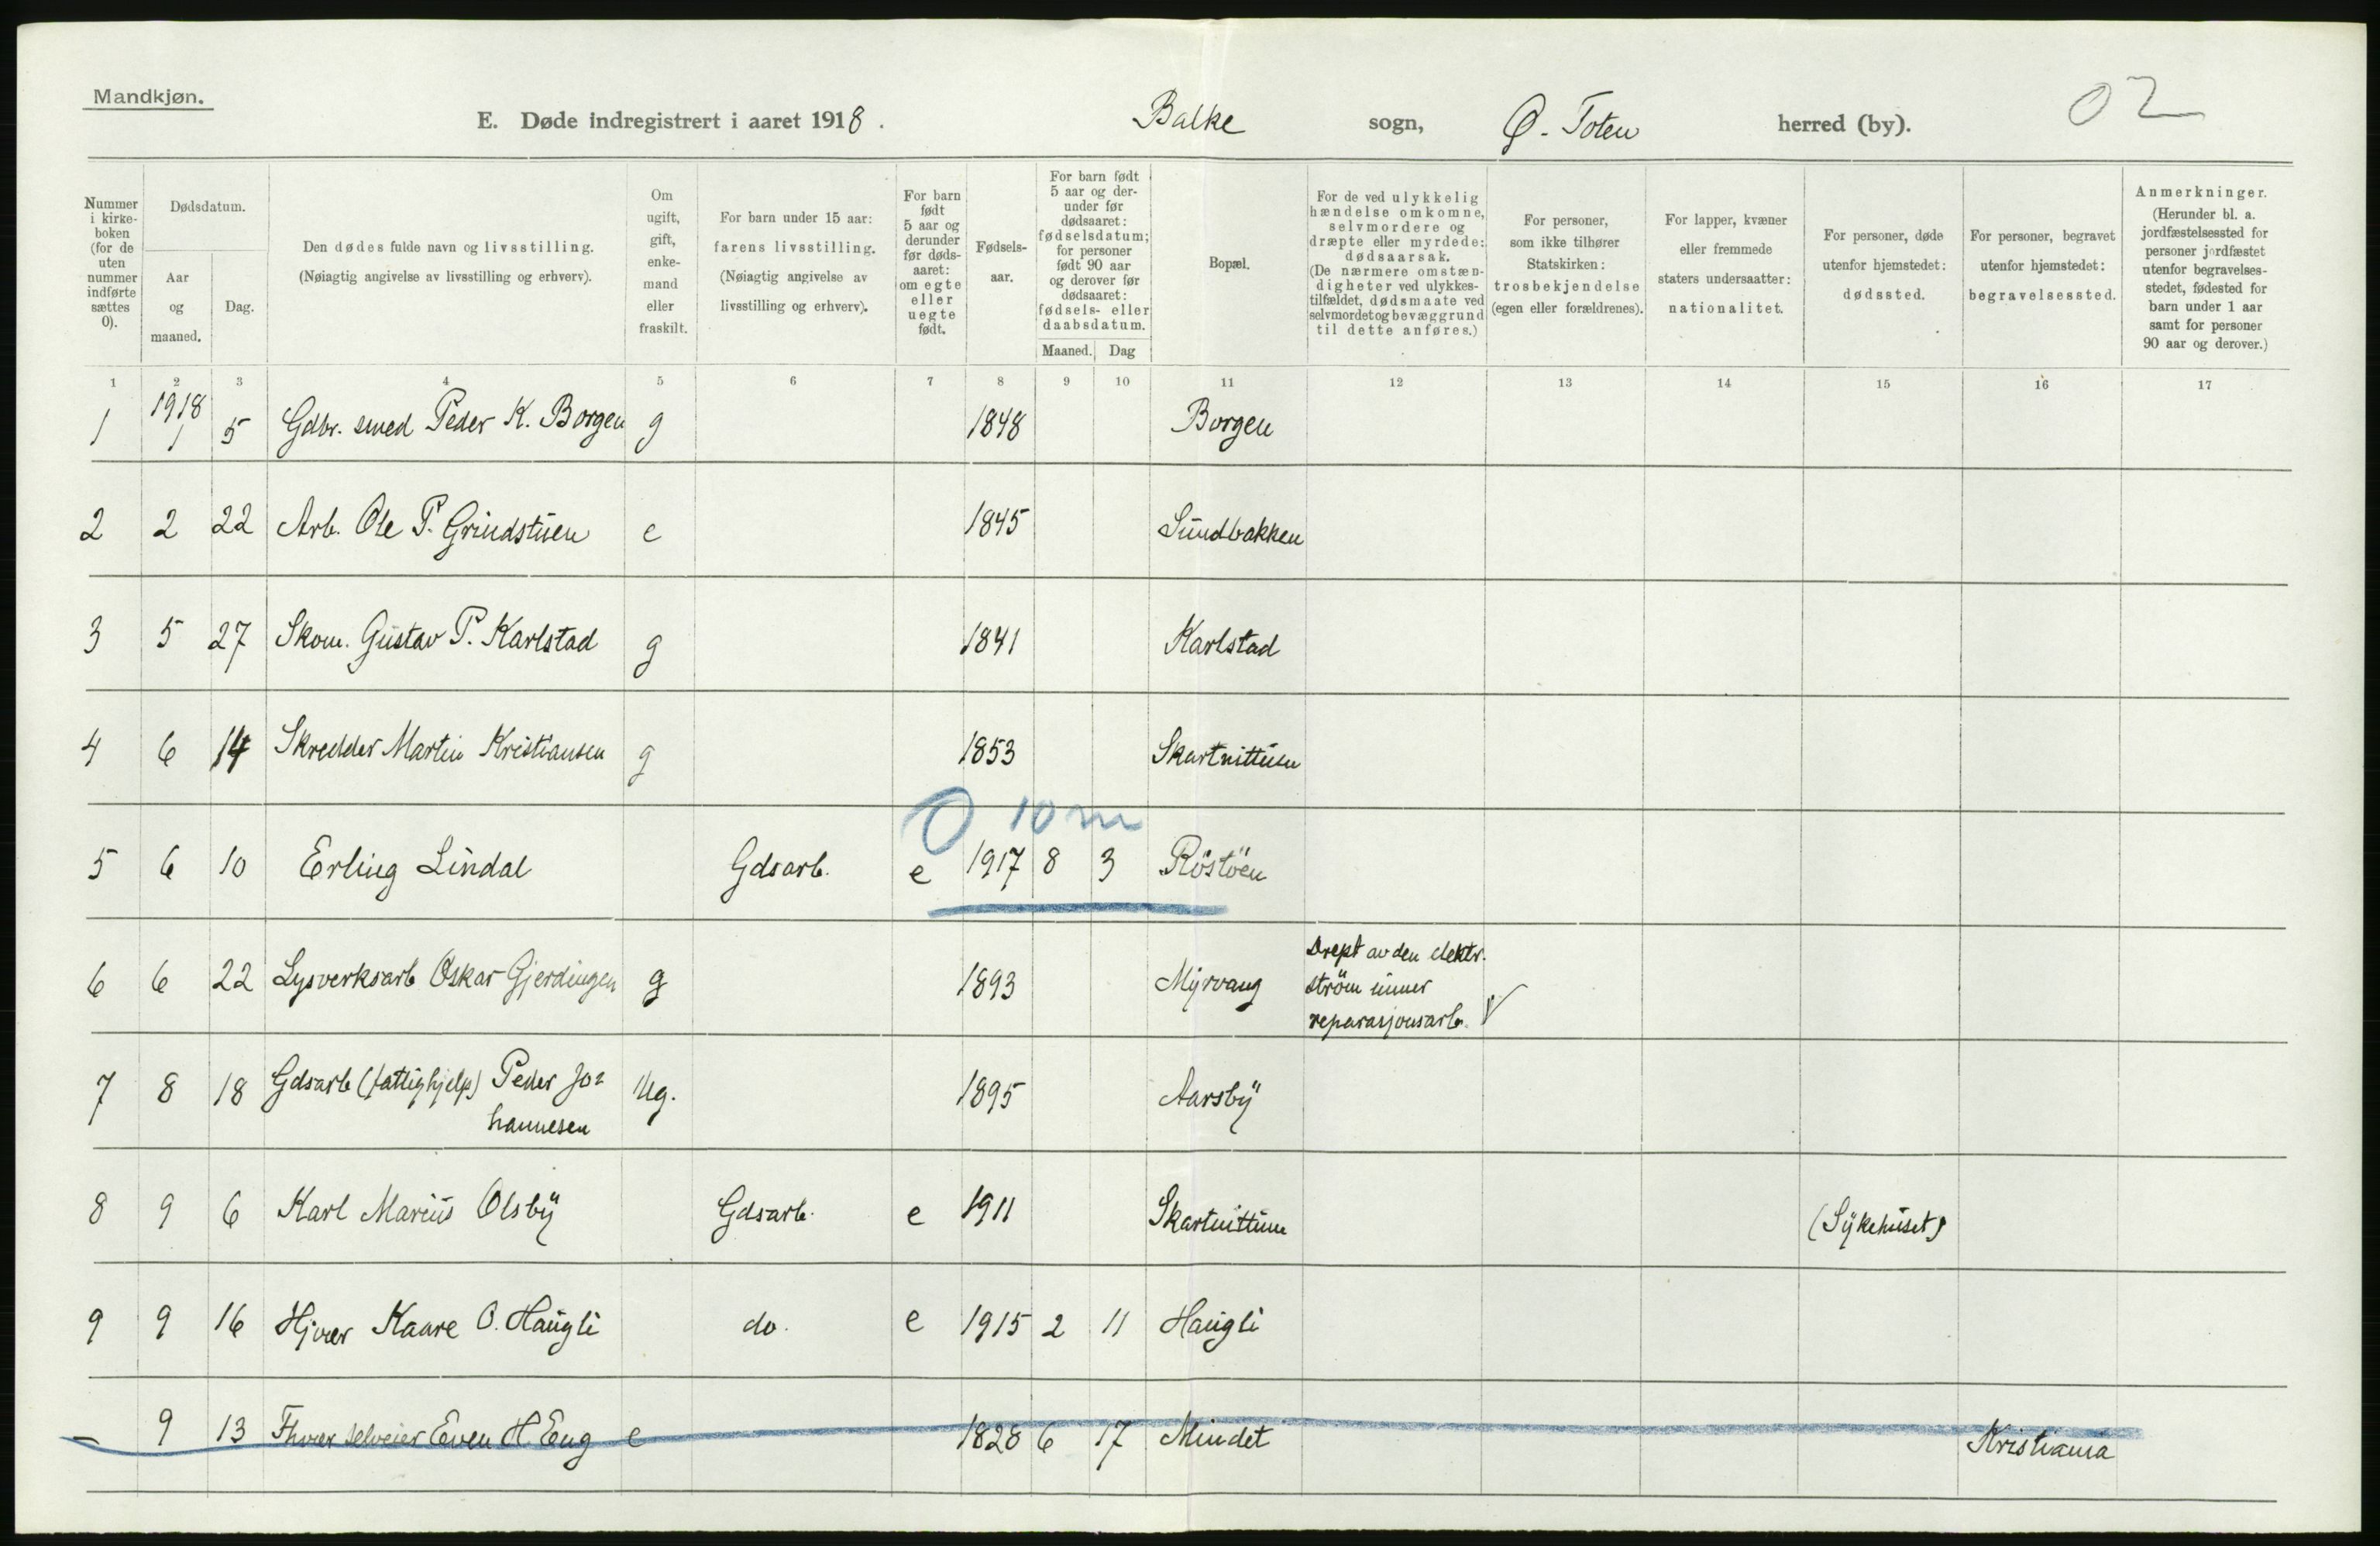 Mandkjøn.
E. Døde indregistrert i aaret 1918. Balke sogn, Ø. Toten herred (by). 02
Nummer i kirke-boken (for de uten nummer indførte sættes 0).
Dødsdatum.
Aar og maaned.
Dag.
Den dødes fulde navn og livsstilling.
(Nøiagtig angivelse av livsstilling og erhverv).
Om ugift, gift, enke-mand eller fraskilt.
For barn under 15 aar:
farens livsstilling.
(Nøiagtig angivelse av
livsstilling og erhverv).
For barn født 5 aar og derunder før døds-aaret: om egte eller uegte født.
Fødsels-aar.
For barn født 5 aar og der-under før dødsaaret: fødselsdatum; for personer født 90 aar og derover før dødsaaret: fødsels- eller daabsdatum.
Maaned. Dag
Bopæl.
For de ved ulykkelig hændelse omkomne, selvmordere og dræpte eller myrdede: dødsaarsak.
(De nærmere omstæn-digheter ved ulykkes-tilfældet, dødsmaate ved selvmordet og bevæggrund til dette anføres.)
For personer, som ikke tilhører Statskirken: trosbekjendelse (egen eller forældrenes).
For lapper, kvæner eller fremmede staters undersaatter: nationalitet.
For personer, døde utenfor hjemstedet: dødssted.
For personer, begravet utenfor hjemstedet: begravelsessted.
Anmerkninger.
(Herunder bl. a. jordfæstelsessted for personer jordfæstet utenfor begravelses-stedet, fødested for barn under 1 aar samt for personer 90 aar og derover.)
1 2 3 4 5 6 7 8 9 10 11 12 13 14 15 16 17
1918
1 1 5 Gdbr. smed Peder K. Borgen g 1848 Borgen
2 2 22 Arb. Ole P. Grindstuen e 1845 Sundbakken
3 5 27 Skom. Gustav P. Karlstad g 1841 Karlstad
4 6 14 Skredder Martin Kristiansen g 1853 Skartnittuen
0 10 m
5 6 10 Erling Lindal Gdsarb. e 1917 8 3 Röstöen
6 6 22 Lysverksarb Oskar Gjerdingen g 1893 Myrvang Drept av den elektr.
ström under
reparasjonsarb. V
7 8 18 Gdsarb (fattighjelp) Peder Jo=
hannesen Ug. 1895 Aarsby
8 9 6 Karl Marius Olsby Gdsarb. e 1911 Skartnittuen (Sykehuset)
9 9 16 Hjvær Kaare O. Haugli do. e 1915 2 11 Haugli
– 9 13 Fhvær selveier Even H. Eng e 1828 6 17 Mindet Kristiania